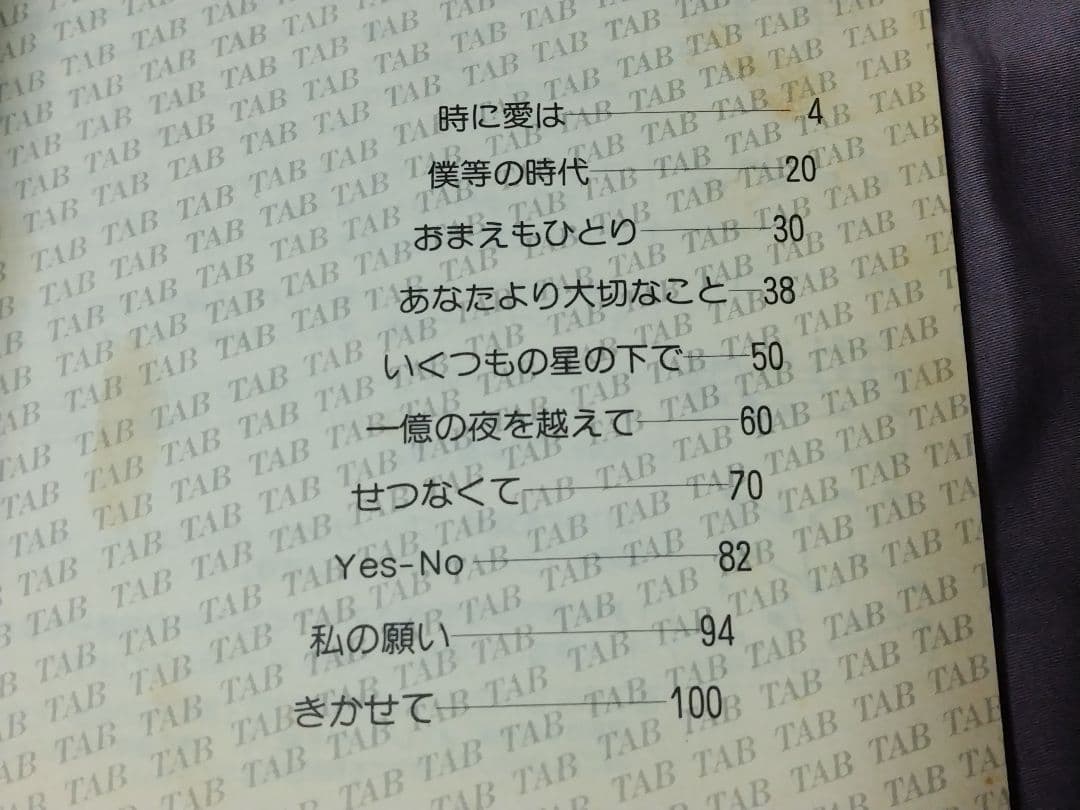 時に愛は 4
僕等の時代 20
おまえもひとり 30
あなたより大切なこと 38
いくつもの星の下で 50
一億の夜を越えて 60
せつなくて 70
Yes-No 82
私の願い 94
きかせて 100